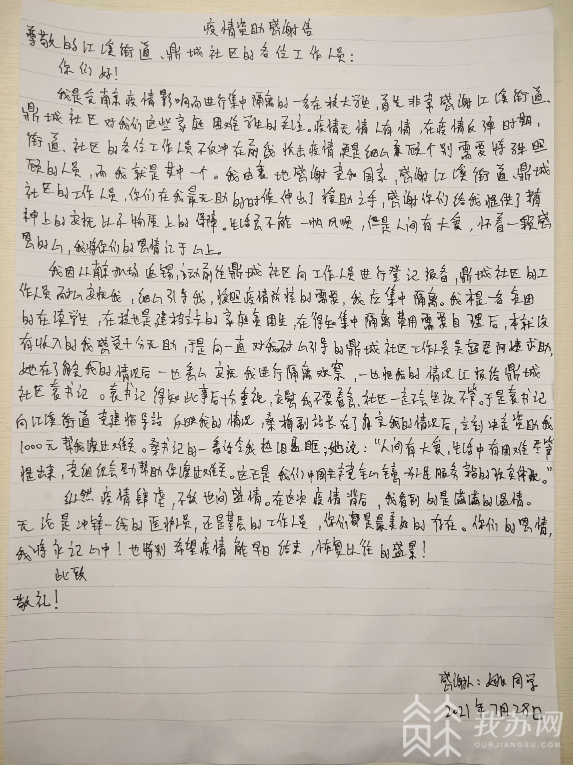 疫情资助感谢信
尊敬的江溪街道、鼎城社区的各位工作人员:
你们好!
我是受南京疫情影响而进行集中隔离的一名在校大学生,首先非常感谢江溪街道、
鼎城社区对我们这些家庭困难学生的关注。疫情无情人有情,在疫情反弹时期,
街道、社区的各位工作人员不仅冲在前线抗击疫情,更是细心兼顾个别需要特殊照
顾的人员,而我就是其中一个。我由衷地感谢党和国家,感谢江溪街道、鼎城
社区的工作人员,你们在我最无助的时候伸出了援助之手,感谢你们给我提供了精
神上的安抚以及物质上的保障。生活不能一帆风顺,但是人间有大爱,怀着一颗感
恩的心,我将你们的恩情记于心上。
我因从南京机场返锡,主动前往鼎城社区向工作人员进行登记报备,鼎城社区的工
作人员耐心安抚我,细心引导我,按照疫情防控的需要,我应集中隔离。我本是一名贫困
的在读学生,在校也是建档立卡的家庭贫困生,在得知集中隔离费用需要自理后,本就没
有收入的我感受十分无助,于是向一直对我耐心引导的鼎城社区工作人员吴阿姨求助,
她在了解我的情况后一边安抚我进行隔离观察,一边把我的情况汇报给鼎城
社区袁书记。袁书记得知此事后十分重视,安慰我不要着急,社区一定不会坐视不管。于是袁书记
向江溪街道党建指导站反映我的情况,桑梅副站长在了解完我的情况后,立刻决定资助我
1000元帮我渡过难关。桑书记的一番话令我热泪盈眶;她说:“人间有大爱,生活中有困难尽管
提出来,党组织会帮助你渡过难关。
纵然疫情肆虐,不敌世间盛情。在这次疫情背后,我看到的是满满的温情。
无论是冲锋一线的医护人员,还是基层的工作人员,你们都是最美好的存在。你们的恩情,
我将永记心中!也特别希望疫情能早日结束,恢复以往的盛景!
此致
敬礼!
感谢人:姚同学
2021年7月28日
我苏网
OURJIANGSU.COM